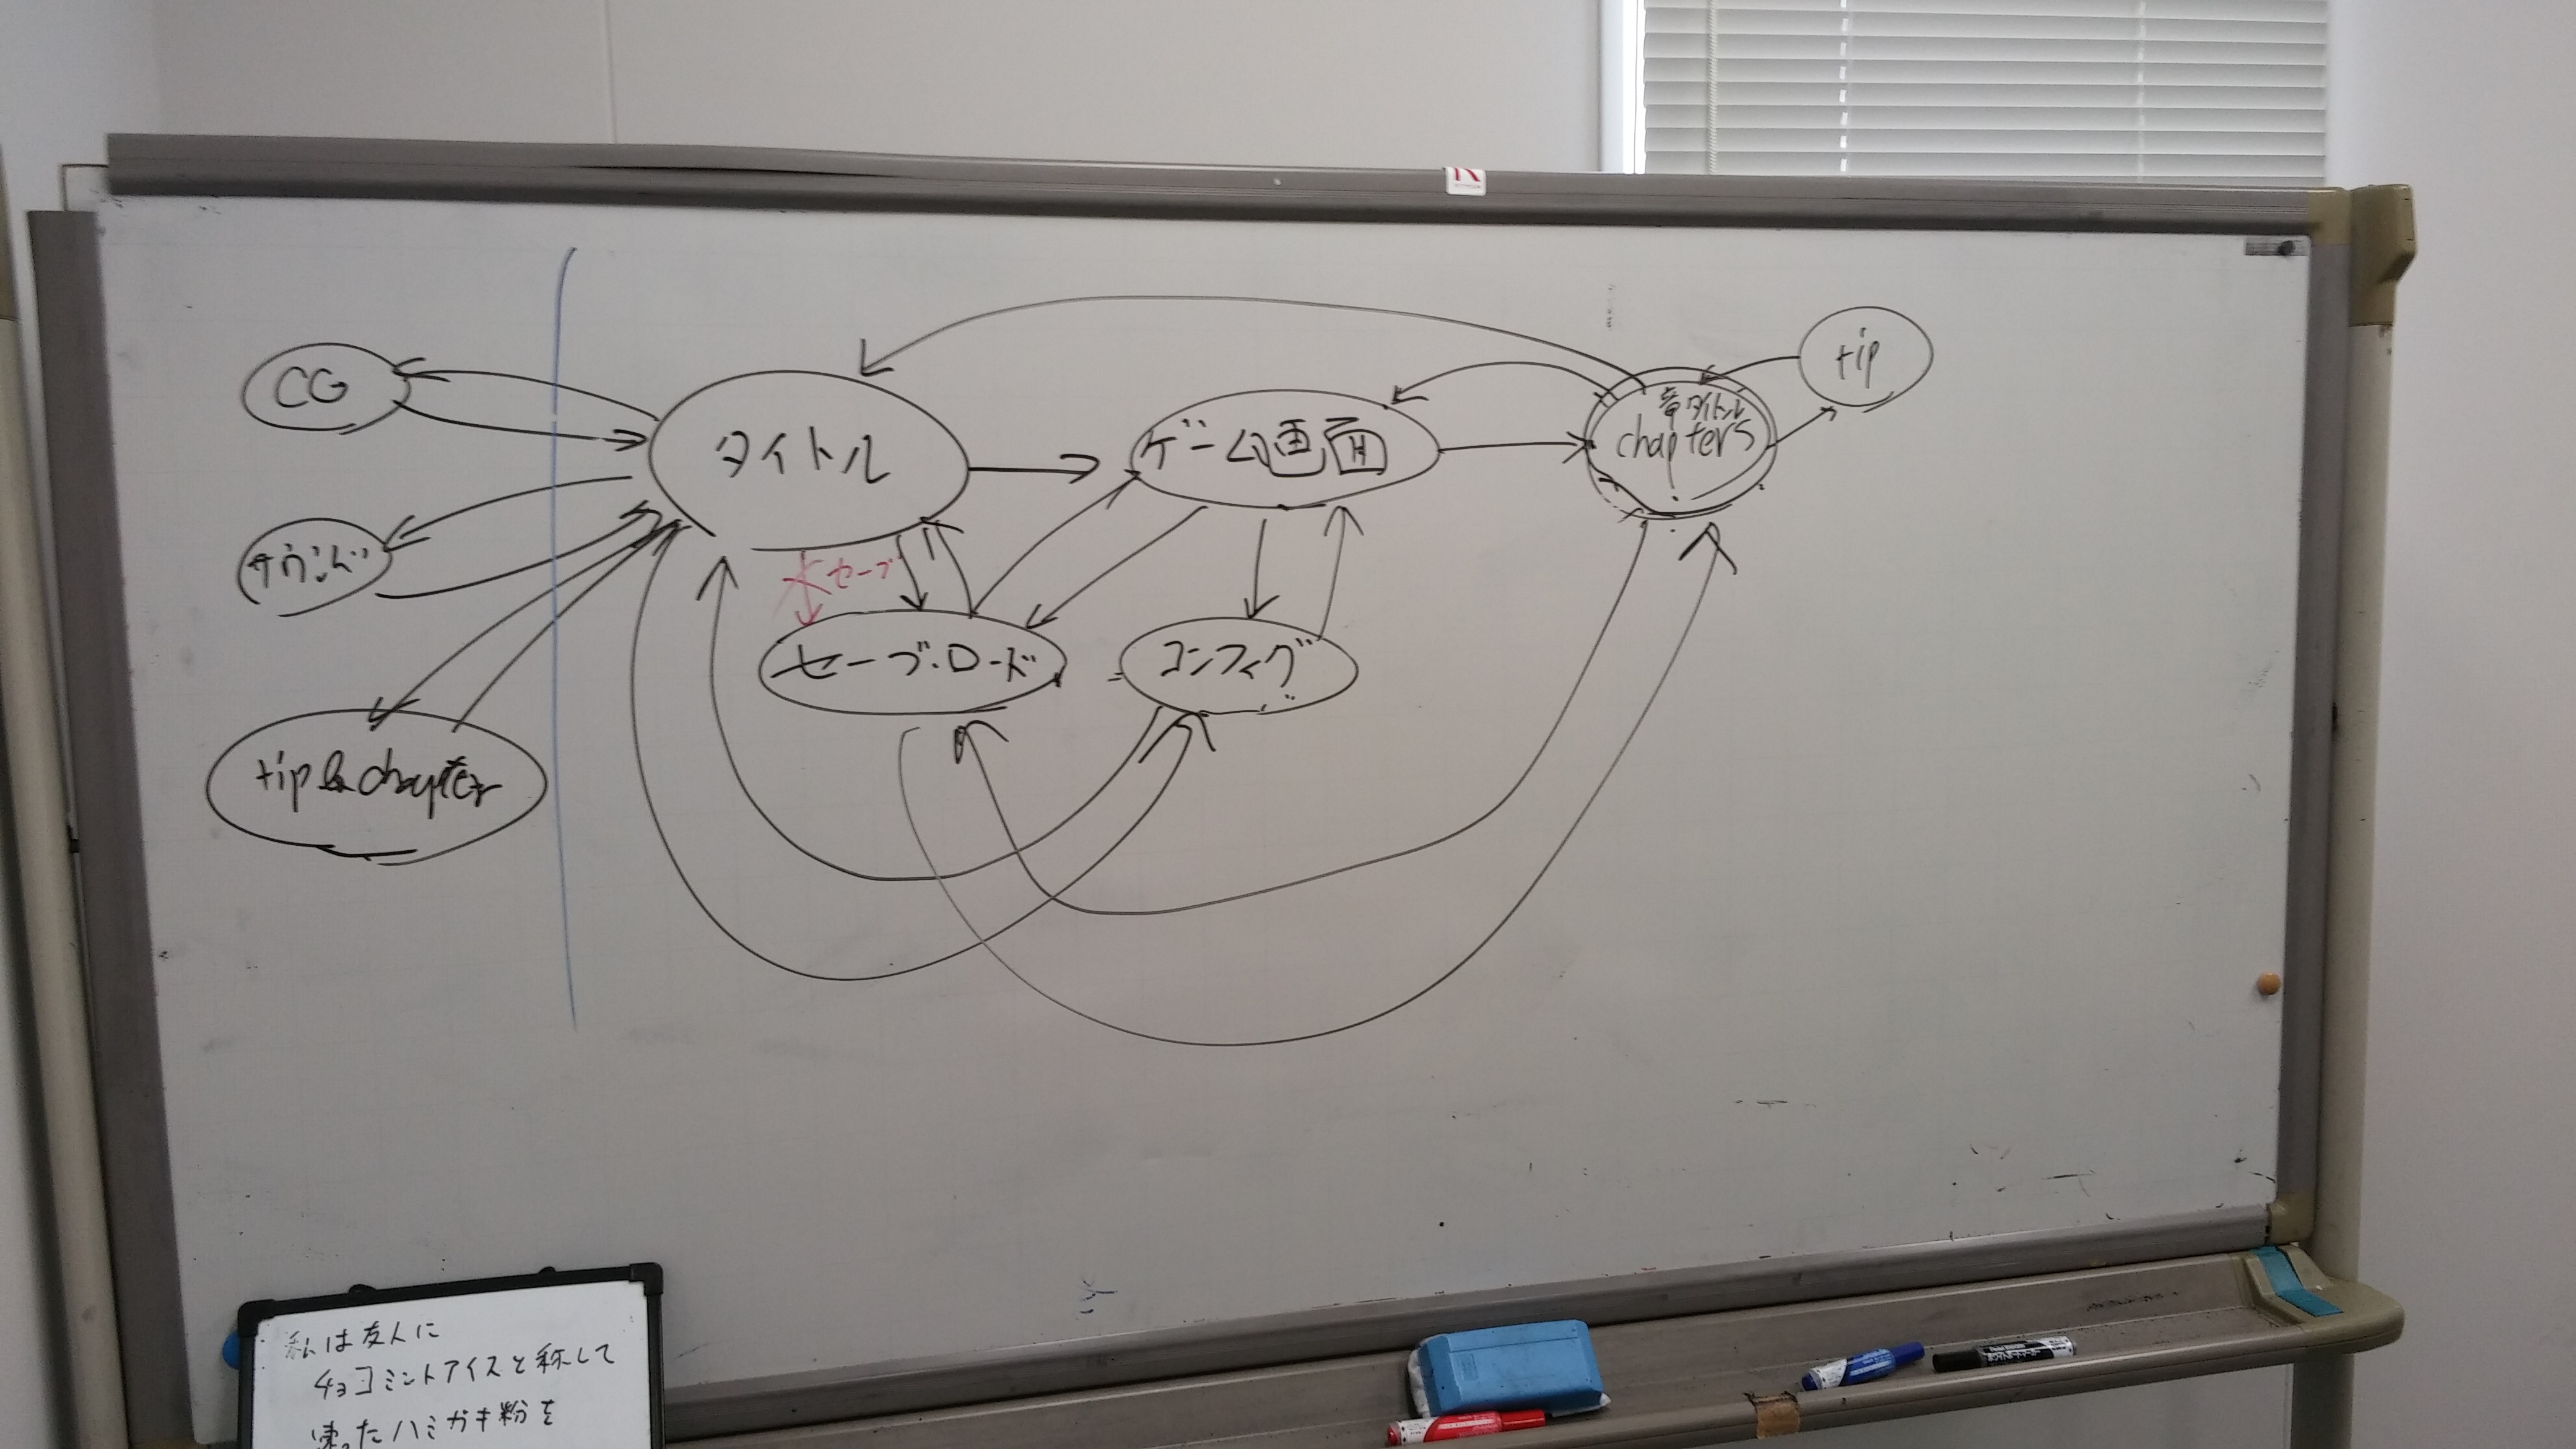 CG
サウンド
tip & chapter
タイトル
セーブ
セーブ・ロード
ゲーム画面
コンフィグ
章タイトル
chapters
tip
私は友人に
チョコミントアイスと称して
凍ったハミガキ粉を